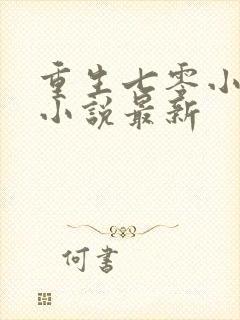 重生七零小
小說最新
何書